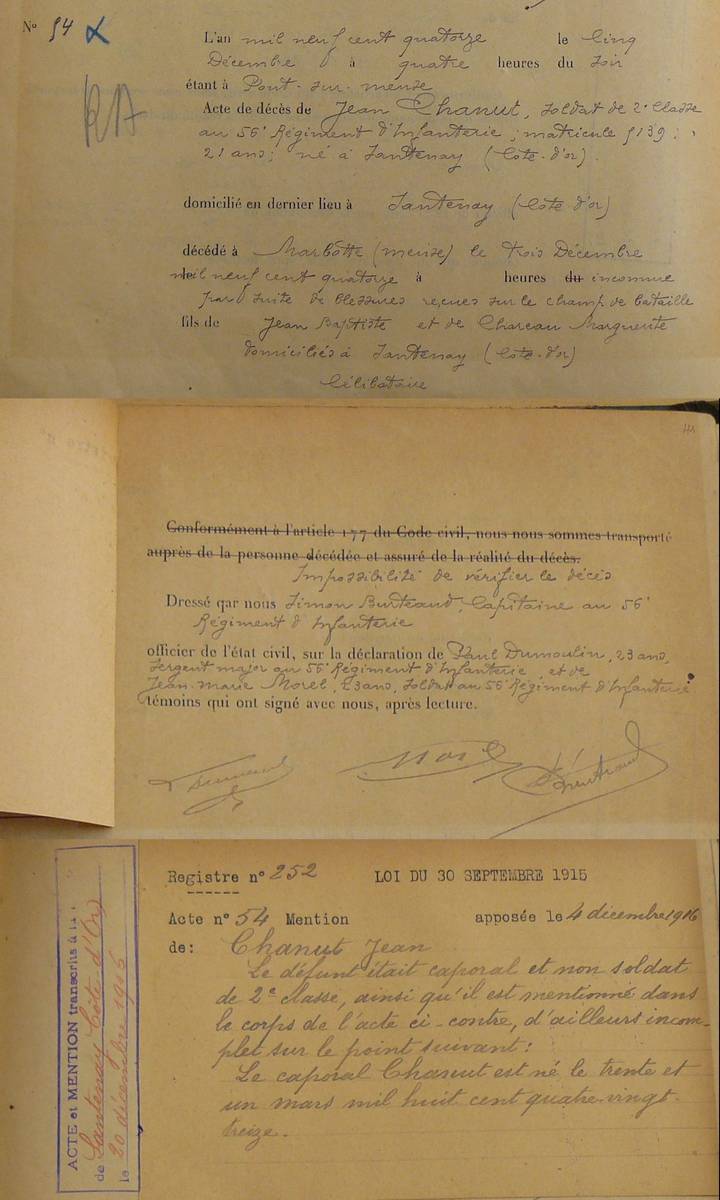 N° 54
RA
L'an mil neuf cent quatorze le Cinq
Décembre à quatre heures du Soir
étant à Pont-sur-meuse
Acte de décès de Jean Chanut, soldat de 2e Classe
au 56e Régiment d'Infanterie ; matricule 5139 ;
21 ans ; né à Santenay (Côte-d'or).
domicilié en dernier lieu à Santenay (Côte d'or)
décédé à Marbotte (meuse) le trois Décembre
mil neuf cent quatorze à heures du inconnue
par suite de blessures reçues sur le champ de bataille
fils de Jean Baptiste et de Chareau Marguerite
domiciliés à Santenay (Côte-d'or)
Célibataire
Conformément à l'article 177 du Code civil, nous nous sommes transporté
auprès de la personne décédée et assuré de la réalité du décès.
Impossibilité de vérifier le décès
Dressé par nous Simon Burteaud, Capitaine au 56e
Régiment d'Infanterie
officier de l'état civil, sur la déclaration de Paul Dumoulin, 23 ans,
Sergent major au 56e Régiment d'Infanterie et de
Jean-marie Morel, 23 ans, soldat au 56e Régiment d'Infanterie
témoins qui ont signé avec nous, après lecture.
Registre n° 252 LOI DU 30 SEPTEMBRE 1915
Acte n° 54 Mention apposée le 4 décembre 1916
de: Chanut Jean
Le défunt était caporal et non soldat
de 2e classe, ainsi qu'il est mentionné dans
le corps de l'acte ci-contre, d'ailleurs incom-
plet sur le point suivant :
Le caporal Chanut est né le trente et
un mars mil huit cent quatre-vingt-
treize.
ACTE et MENTION transcrits à la
de Santenay Côte d'Or
le 20 décembre 1916